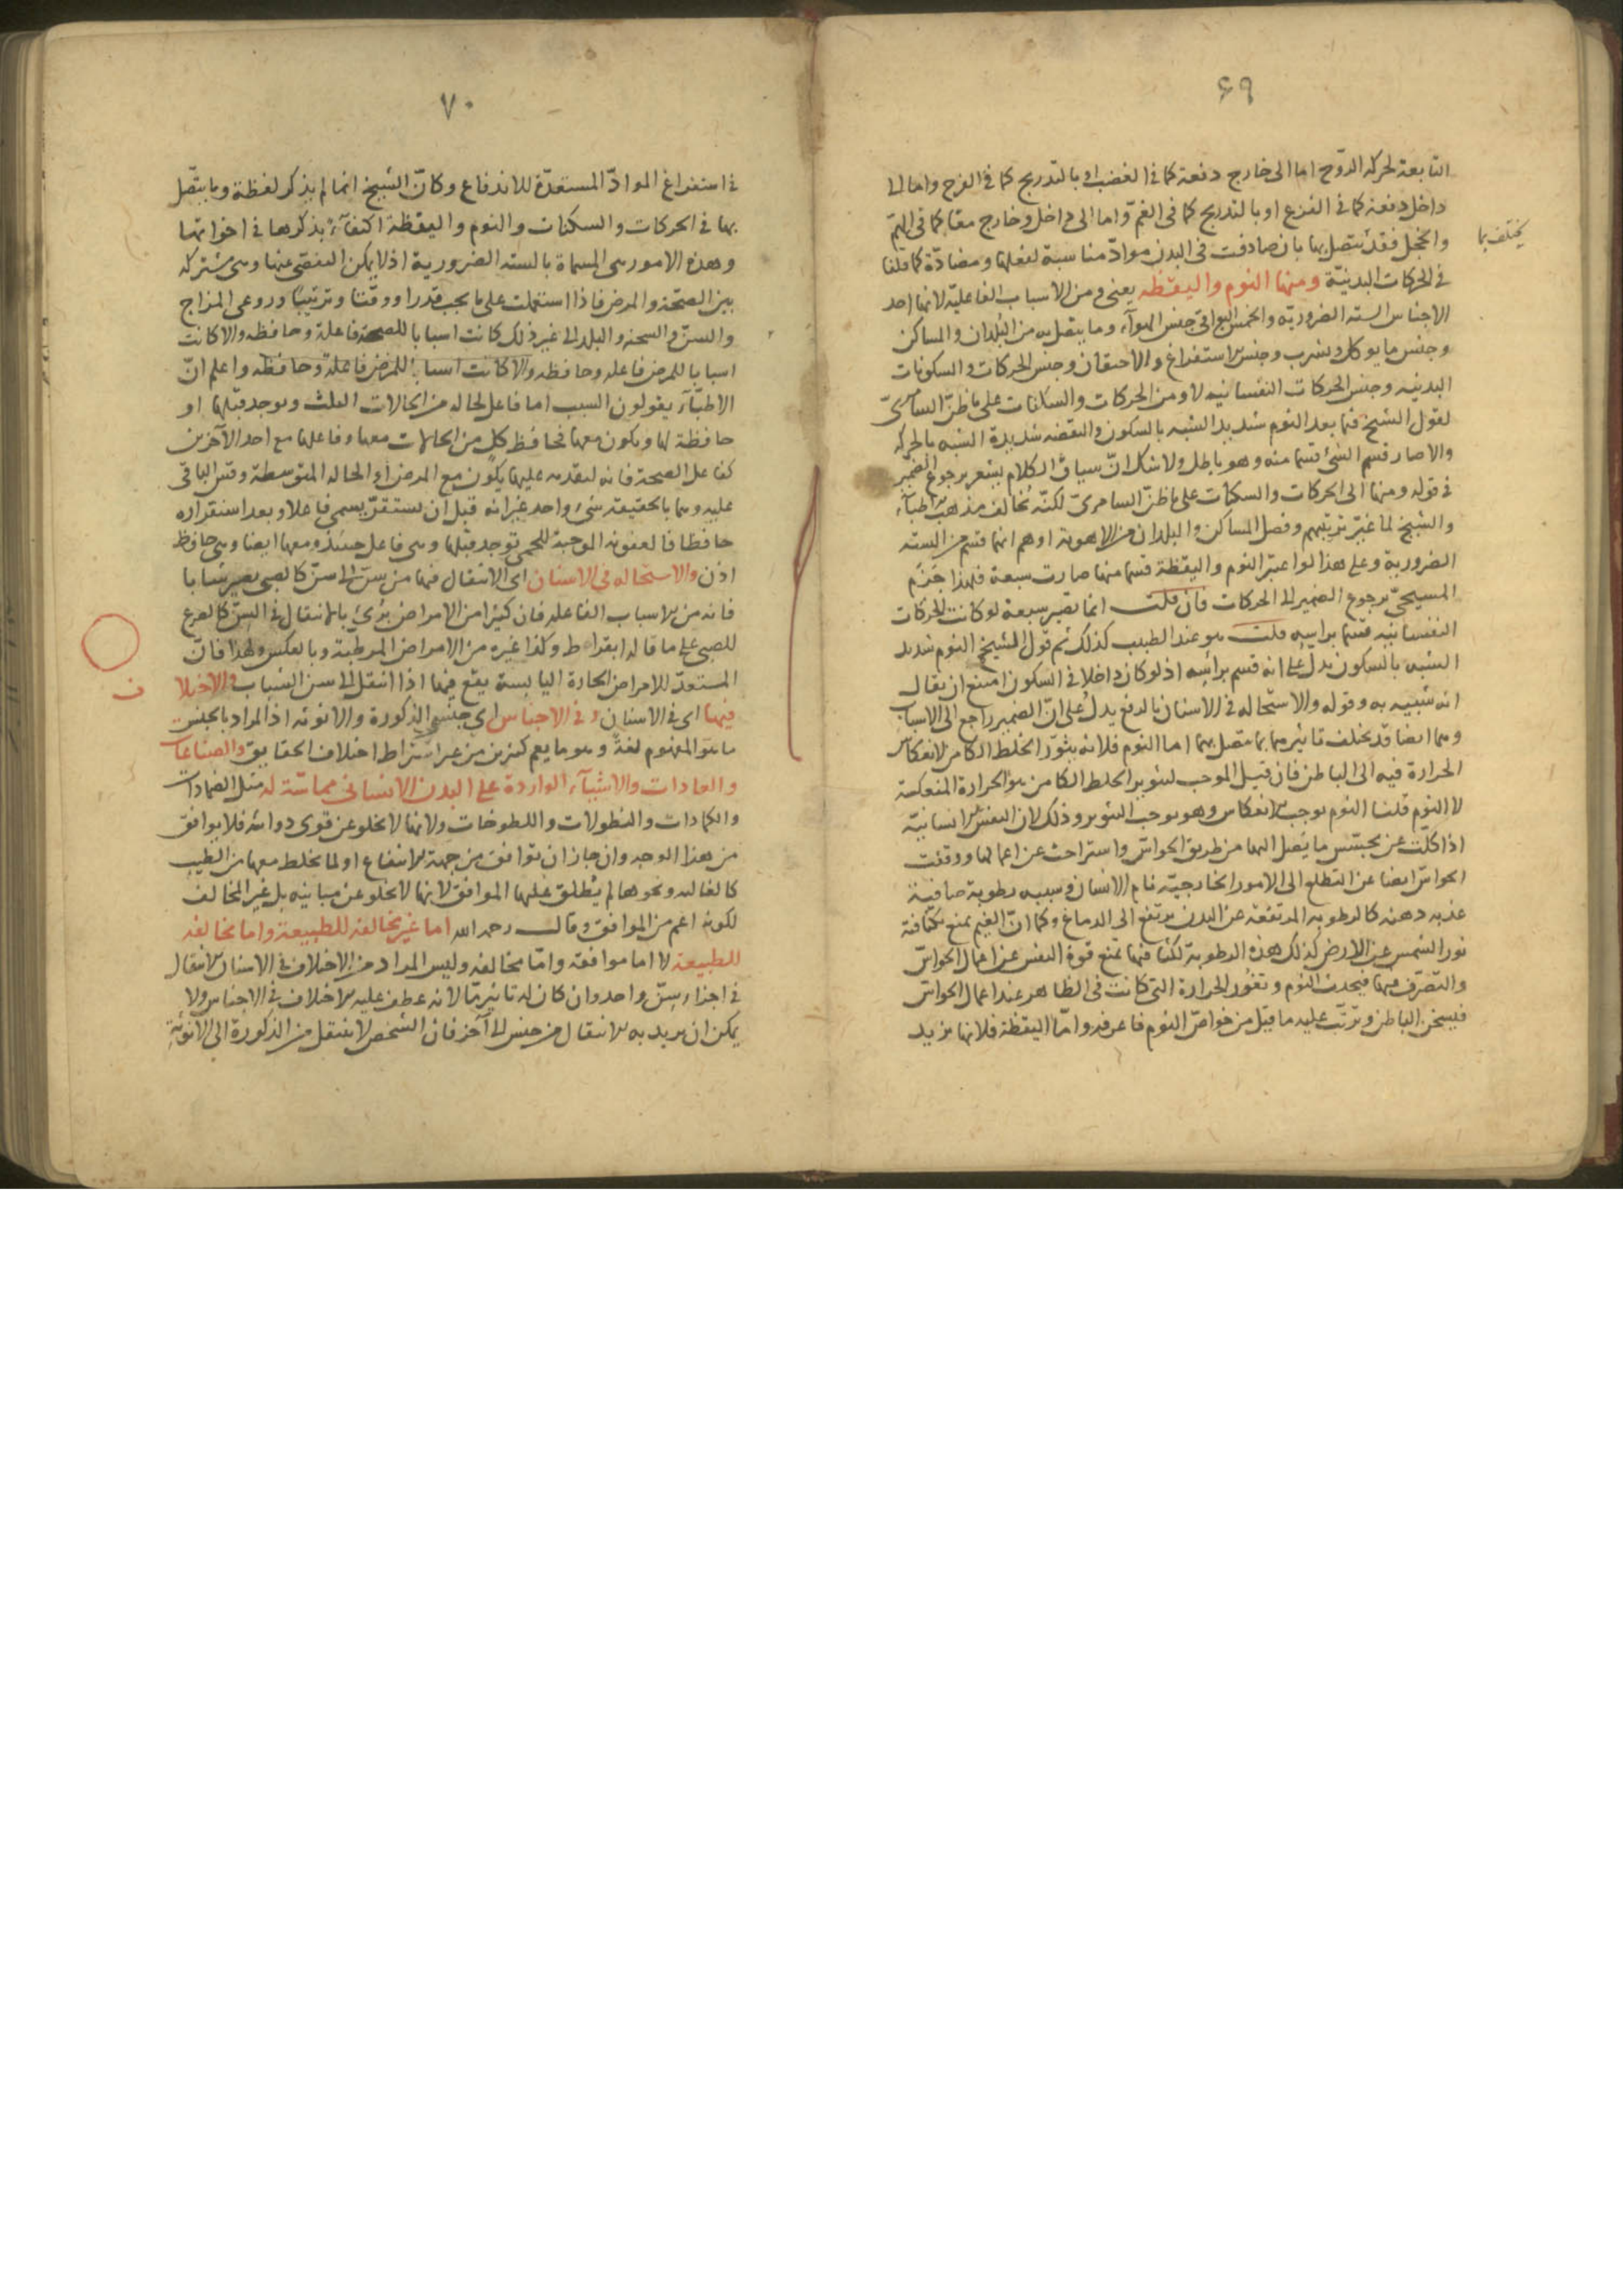 ٦٩
التابعة لحركة الروح اما الى خارج دفعة كما فى الغضب او بالتدريج كما فى الفرح واما الى
داخل دفعة كما فى الفزع او بالتدريج كما فى الغمّ واما الى داخل وخارج معا كما فى الهمّ
والخجل فقد يتصل بها بان صادفت فى البدن موادّ مناسبة لفعلها ومضادّة كما قلنا
يختلف بما
فى الحركات البدنيّة ومنها النوم واليقظه يعنى ومن الاسباب الفاعليّة لانها احد
الاجناس الستة الضروريّه والخمس البواقى جنس الهوآء وما يتصل به من البلدان والمساكن
وجنس ما يوكل ويشرب وجنس الاستفراغ والاحتقان وجنس الحركات والسكونات
البدنيه وجنس الحركات النفسانيه لا ومن الحركات والسكنات على ما ظنّ السامرىّ
لقول الشيخ فيما بعد النوم شديد الشبه بالسكون واليقضه شديدة الشبه بالحركه
والا صار قسم الشئ قسما منه وهو باطل ولا شك انّ سياق الكلام يشعر برجوع الضمير
فى قوله ومنها الى الحركات والسكنات على ما ظنّ السامرىّ لكنّه يخالف مذهب الاطبآء
والشيخ لما غيّر ترتيبهم وفصل المساكن والبلدان من الاهوية اوهم انها قسم من الستة
الضروريّة وعلى هذا لو اعتبر النوم واليقظة قسما منها صارت سبعة فلهذا جَزَم
المسيحىّ برجوع الضمير الى الحركات فان قلت انما تصير سبعة لو كانت الحركات
النفسانيّه قسما براسه قلت هو عند الطبيب كذلك ثم قول الشيخ النوم شديد
الشبه بالسكون يدلّ على انه قسم براسه اذ لو كان داخلا فى السكون امتنع ان يقال
انه شبيه به وقوله والاستحاله فى الاسنان بالدفع يدلّ على انّ الضمير راجع الى الاسباب
وهما ايضا قد يختلف تاثيرهما بما يتصل بهما اما النوم فلانه يثوّر الخلط الكامن لانعكاس
الحرارة فيه الى الباطن فان قيل الموجب لتثوير الخلط الكامن هو الحرارة المنعكسة
لا النوم قلنا النوم يوجب الانعكاس وهو يوجب التثوير وذلك لان النفس الانسانيّة
اذا كلّت عن تجسّس ما يصل اليها من طريق الحواسّ واستراحت عن اعمالها ووقفت
الحواسّ ايضا عن التطلع الى الامور الخارجيّة نام الانسان وسببه رطوبة صافية
عذبه دهنه كالرطوبه المرتفعة عن البدن يرتفع الى الدماغ وكما انّ الغيم يمنع بكثافته
نور الشمس عن الارض كذلك هذه الرطوبة لكثافتها تمنع قوة النفس عن اعمال الحواسّ
والتصّرف فيها فيحدث النوم وتغُور الحرارة التى كانت فى الظاهر عند اعمال الحواسّ
فيسخن الباطن وترتّب عليه ما قيل من خواصّ النوم فاعرفه وامّا اليقظة فلانها تزيد
٧٠
فى استفراغ الموادّ المستعدّة للاندفاع وكانّ الشيخ انما لم يذكر لفظة وما يتّصل
بها فى الحركات والسكنات والنوم واليقظة اكتفآءً بذكرها فى اخواتها
وهذه الامور هى المسماة بالستة الضرورية اذ لا يمكن التفصّى عنها وهى مشتركه
بين الصحّة والمرض فاذا استعملت على ما يجب قدرا ووقتا وترتيبًا وروعى المزاج
والسنّ والسحنه والبلد الى غير ذلك كانت اسبابا للصحة فاعلة وحافظه والا كانت
اسبابا للمرض فاعله وحافظه والا كانت اسبابا للمرض فاعلة وحافظه واعلم انّ
الاطبّآء يقولون السبب اما فاعل لحاله من الحالات الثلث ويوجد قبلها او
حافظة لها ويكون معها فحافظ كل من الحالات معها وفاعلها مع احد الآخرين
كفاعل الصحة فانه لتقدّمه عليها يكون مع المرض او الحاله المتوسطة وقس الباقى
عليه وهما بالحقيقة شئ واحد غير انه قبل ان يستقرّ يسمى فاعلا وبعد استقراره
حافظا فالعفونه الموجبة للحمى توجد قبلها وهى فاعل حينئذ ومعها ايضا وهى حافظ
اذن والاستحاله فى الاسنان اى الانتقال فيها من سن الى سنّ كالصبى يصير شابا
فانه من الاسباب الفاعله فان كثيرا من الامراض يبرئ بالانتقال فى السنّ كالصرع
للصبى على ما قاله ابقراط وكذا غيره من الامراض المرطبة وبالعكس ولهذا فانّ
المستعدّ للامراض الحارة اليابسة يقع فيها اذا انتقل الى سن الشباب والاختلا
ف
فيها اى فى الاسنان وفى الاجناس اى جنسى الذكورة والانوثه اذ المراد بالجنس
ما هو المفهوم لغةً وهو ما يعم كثيرين من غير اشتراط اختلاف الحقايق والصناعات
والعادات والاشيآء الواردة على البدن الانسانى مماسّة له مثل الضمادات
والكمادات والنطولات واللطوخات ولانها لا تخلو عن قوى دوائه فلا يوافق
من هذا الوجه وان جاز ان توافق من جهة الانتفاع او لما يخلط معها من الطيب
كالغاليه ونحوها لم يُطلق عليها الموافق لانها لا تخلو عن مباينه بل غير المخالف
لكونه اعم من الموافق وقال رحمه الله اما غير مخالفه للطبيعة واما مخالفه
للطبيعة لا اما موافقة وامّا مخالفه وليس المراد من الاختلاف فى الاسنان الانتقال
فى اجزاء سِنّ واحد وان كان له تاثير مّا لانه عطف عليه الاختلاف فى الاجناس ولا
يمكن ان يريد به الانتقال من جنس الى آخر فان الشخص لا ينتقل من الذكورة الى الانوثة